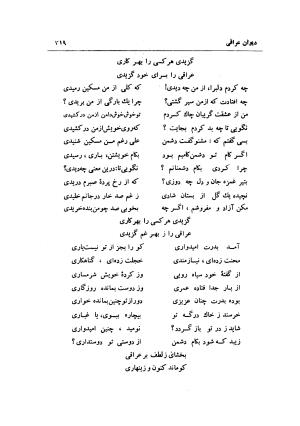 دیوان عراقی ۲۱۹
گزیدی هر کسی را بهر کاری
عراقی را برای خود گزیدی
چه کردم دلبرا، از من چه دیدی؟ که کلی از من مسکین رمیدی
چه افتادت که از من سیر گشتی؟ چرا یک بارگی از من بریدی؟
من از عشقت گریبان چاک کردم تو خوش خوش دامن از من در کشیدی
نگویی تا چه بد کردم بجایت ؟ که روی خویش از من در کشیدی
بسی گفتم که : مشنو گفت دشمن علی رغم من مسکین شنیدی
اگر کام تو دشمن کامیم بود بکام خویشتن، باری ، رسیدی
چرا کردی بکام دشمنانم ؟ نگویی تا: درین معنی چه دیدی؟
بتیر غمزه جان و دل چه دوزی؟ که از رخ پردهٔ صبرم دریدی
نچیده یک گل از بستان شادی ز غم صد خار در جانم خلیدی
مکن آزاد و مفروشم ، اگر چه بخوبی صد چو من بنده خریدی
گزیدی هر کسی را بهر کاری
عراقی را ز بهر غم گزیدی
آمد بدرت امیدواری کو را بجز از تو نیست یاری
محنت زده‌ای ، نیازمندی خجلت زده‌ای ، گناهکاری
از گفتهٔ خود سیاه رویی وز کردهٔ خویش شرمساری
از یار جدا فتاده عمری وز دوست بمانده روزگاری
بوده بدرت چنان عزیزی دور از تو چنین بمانده خواری
خرسند ز خاک درگه تو بیچاره ببوی، یا غباری
شاید ز در تو باز گردد؟ نومید ، چنین امیدواری
زیبد که شود بکام دشمن از دوستی تو دوستداری ؟
بخشای ز لطف بر عراقی
کو ماند کنون و زینهاری